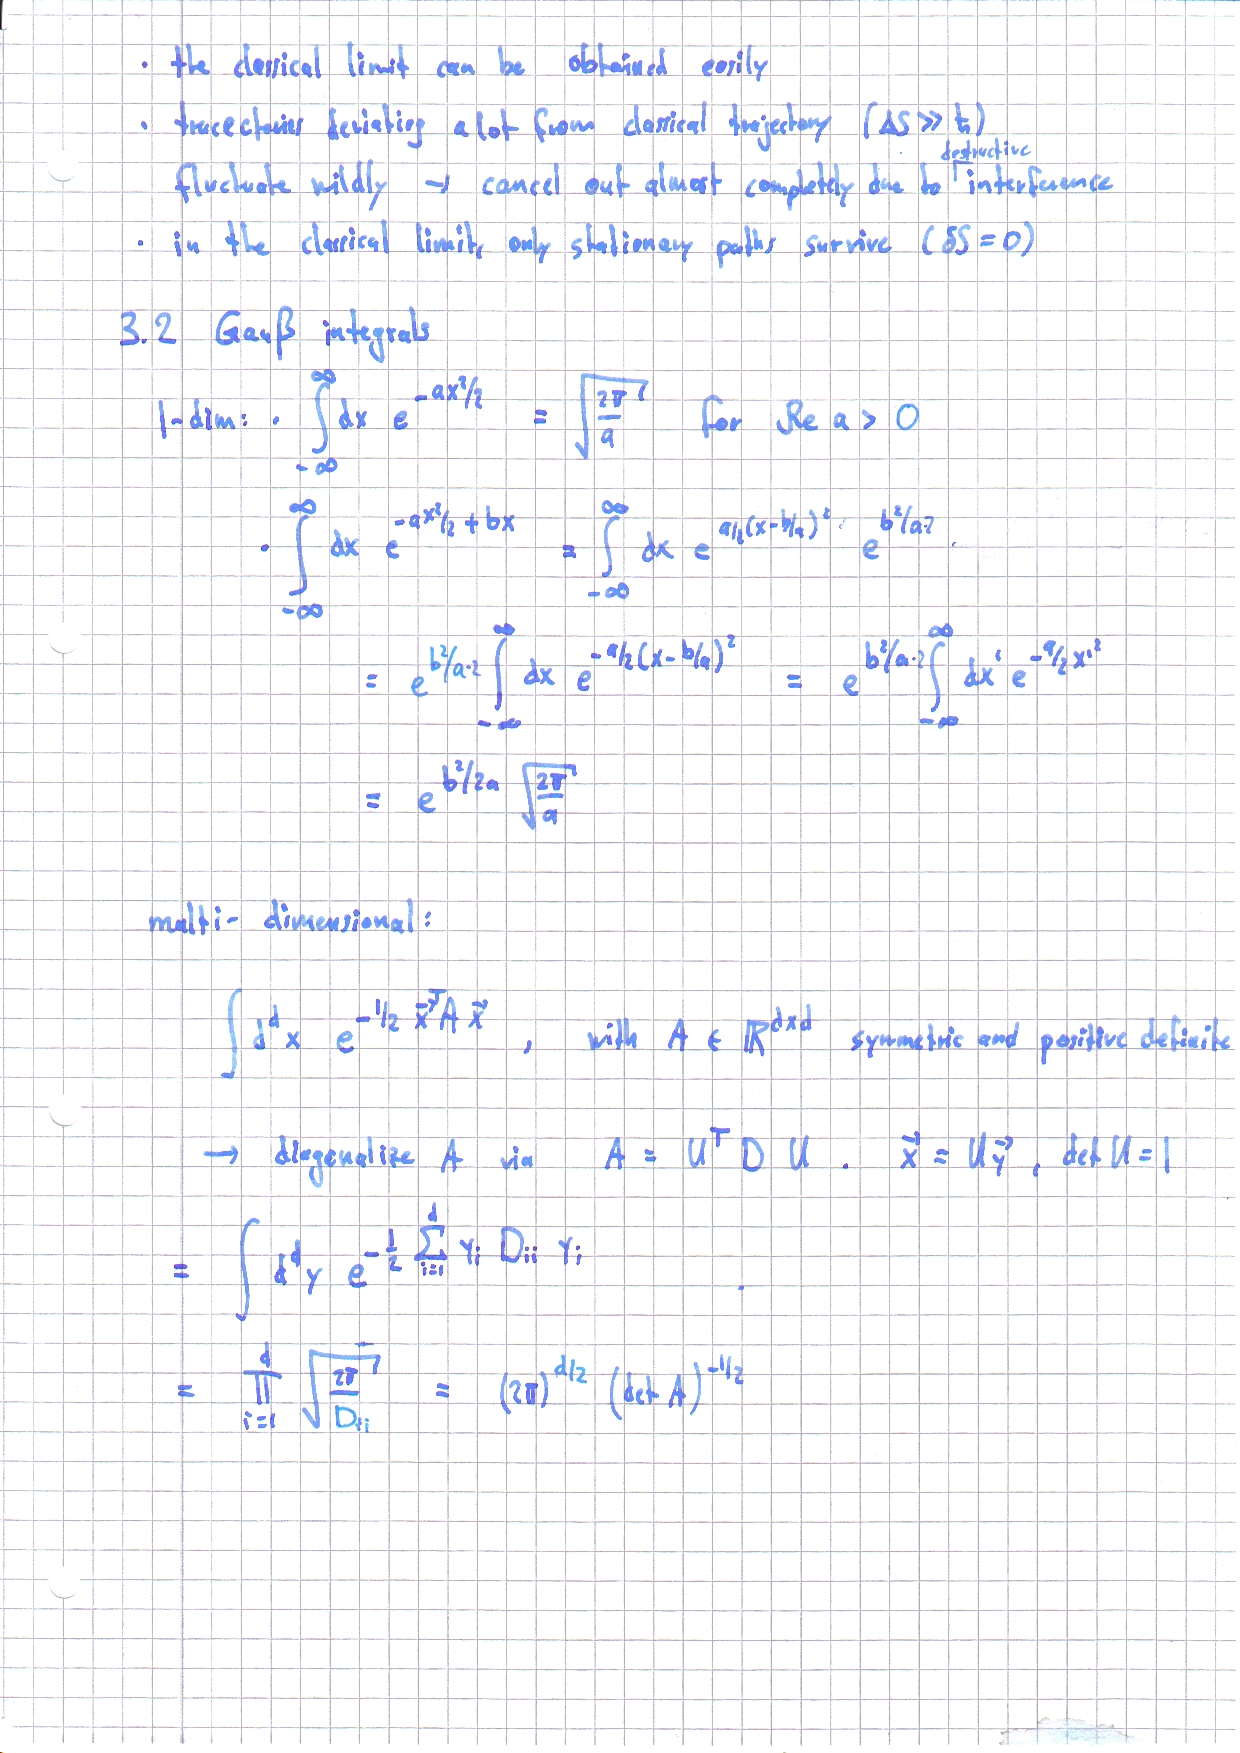 · the classical limit can be obtained easily
· tracectories deviating a lot from classical trajectory (ΔS ≫ ħ)
fluctuate wildly → cancel out almost completely due to ⌈destructive interference
· in the classical limit, only stationary paths survive (δS = 0)
3.2 Gauß integrals
1-dim: · ∫_{-∞}^{∞} dx e^{-ax²/2} = √(2π/a) for Re a > 0
· ∫_{-∞}^{∞} dx e^{-ax²/2 + bx} = ∫_{-∞}^{∞} dx e^{a/2(x-b/a)²} · e^{b²/a·2}
= e^{b²/a·2} ∫_{-∞}^{∞} dx e^{-a/2(x-b/a)²} = e^{b²/a·2} ∫_{-∞}^{∞} dx' e^{-a/2 x'²}
= e^{b²/2a} √(2π/a)
multi-dimensional:
∫ d^d x e^{-1/2 x⃗^T A x⃗}, with A ∈ ℝ^{d×d} symmetric and positive definite
→ diagonalize A via A = U^T D U . x⃗ = U y⃗, det U = 1
= ∫ d^d y e^{-1/2 Σ_{i=1}^{d} y_i D_{ii} y_i}
= ∏_{i=1}^{d} √(2π/D_{ii}) = (2π)^{d/2} (det A)^{-1/2}